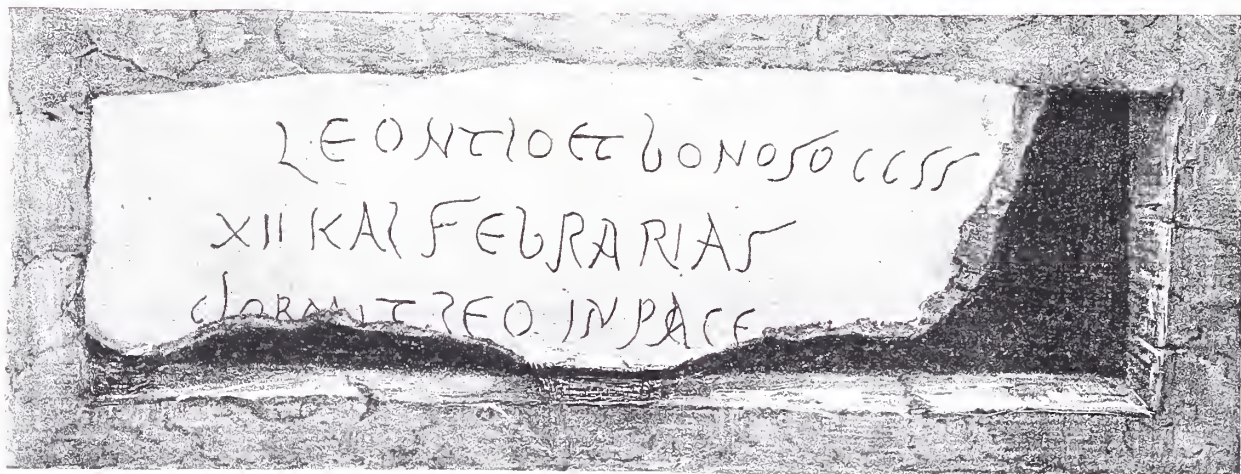 LEONTIO ET BONOSO CCSS
XII KAL FEBRARIAS
DORMIT LEO IN PACE